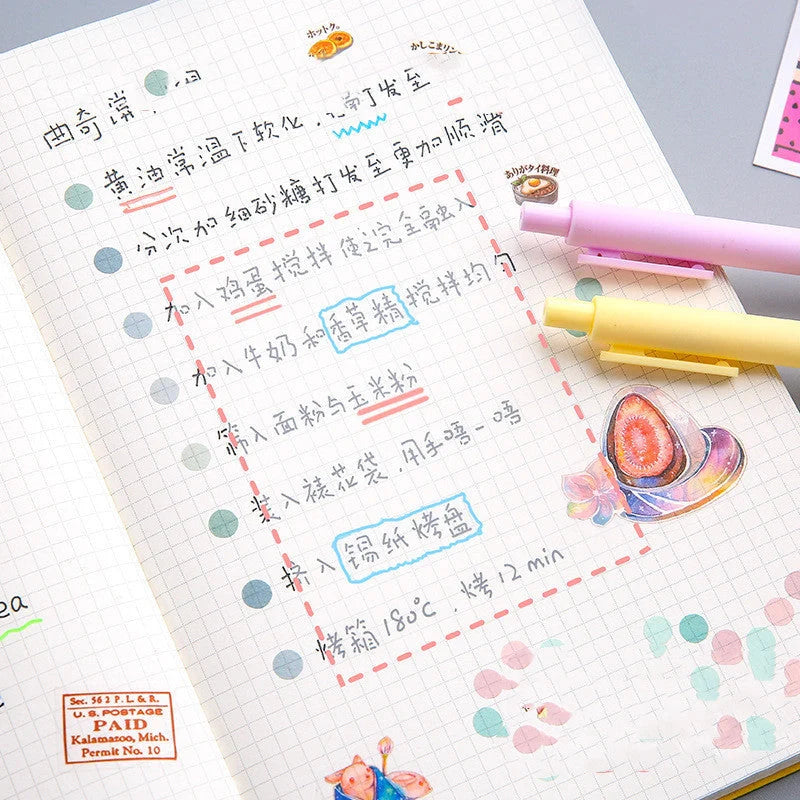 ホットク。
かしこまリン
曲奇常
黄油常温下软化 打发至
分次加细砂糖打发至更加顺滑
ありがタイ料理
加入鸡蛋搅拌使之完全融入
加入牛奶和香草精搅拌均匀
筛入面粉与玉米粉
装入裱花袋,用手唔一唔
挤入锡纸烤盘
烤箱180℃,烤12min
ea
Sec. 562 P. L. & R.
U.S. POSTAGE
PAID
Kalamazoo, Mich.
Permit No. 10